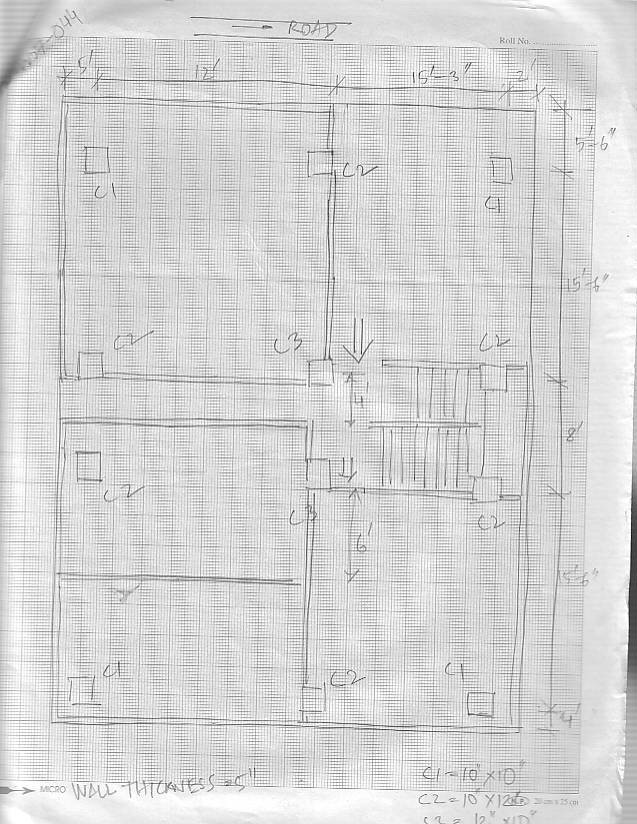 ROAD
Roll No.
5' 12' 15'-3" 2'
5'-6"
C1 C2 C1
15'-6"
C2 C3 C2
4'
8'
C2 C3 C2
6'
15'-6"
C1 C2 C1
4'
MICRO WALL THICKNESS = 5"
C1 = 10" X 10"
C2 = 10" X 12"
20 cm x 25 cm
C3 = 12" X 10"